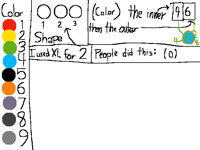 Color
1
2
3
4
5
6
7
8
9
1 2 3
Shape
(Color) the inner
then the outer
4 6
4
6
I used XL for 2
People did this: (0)